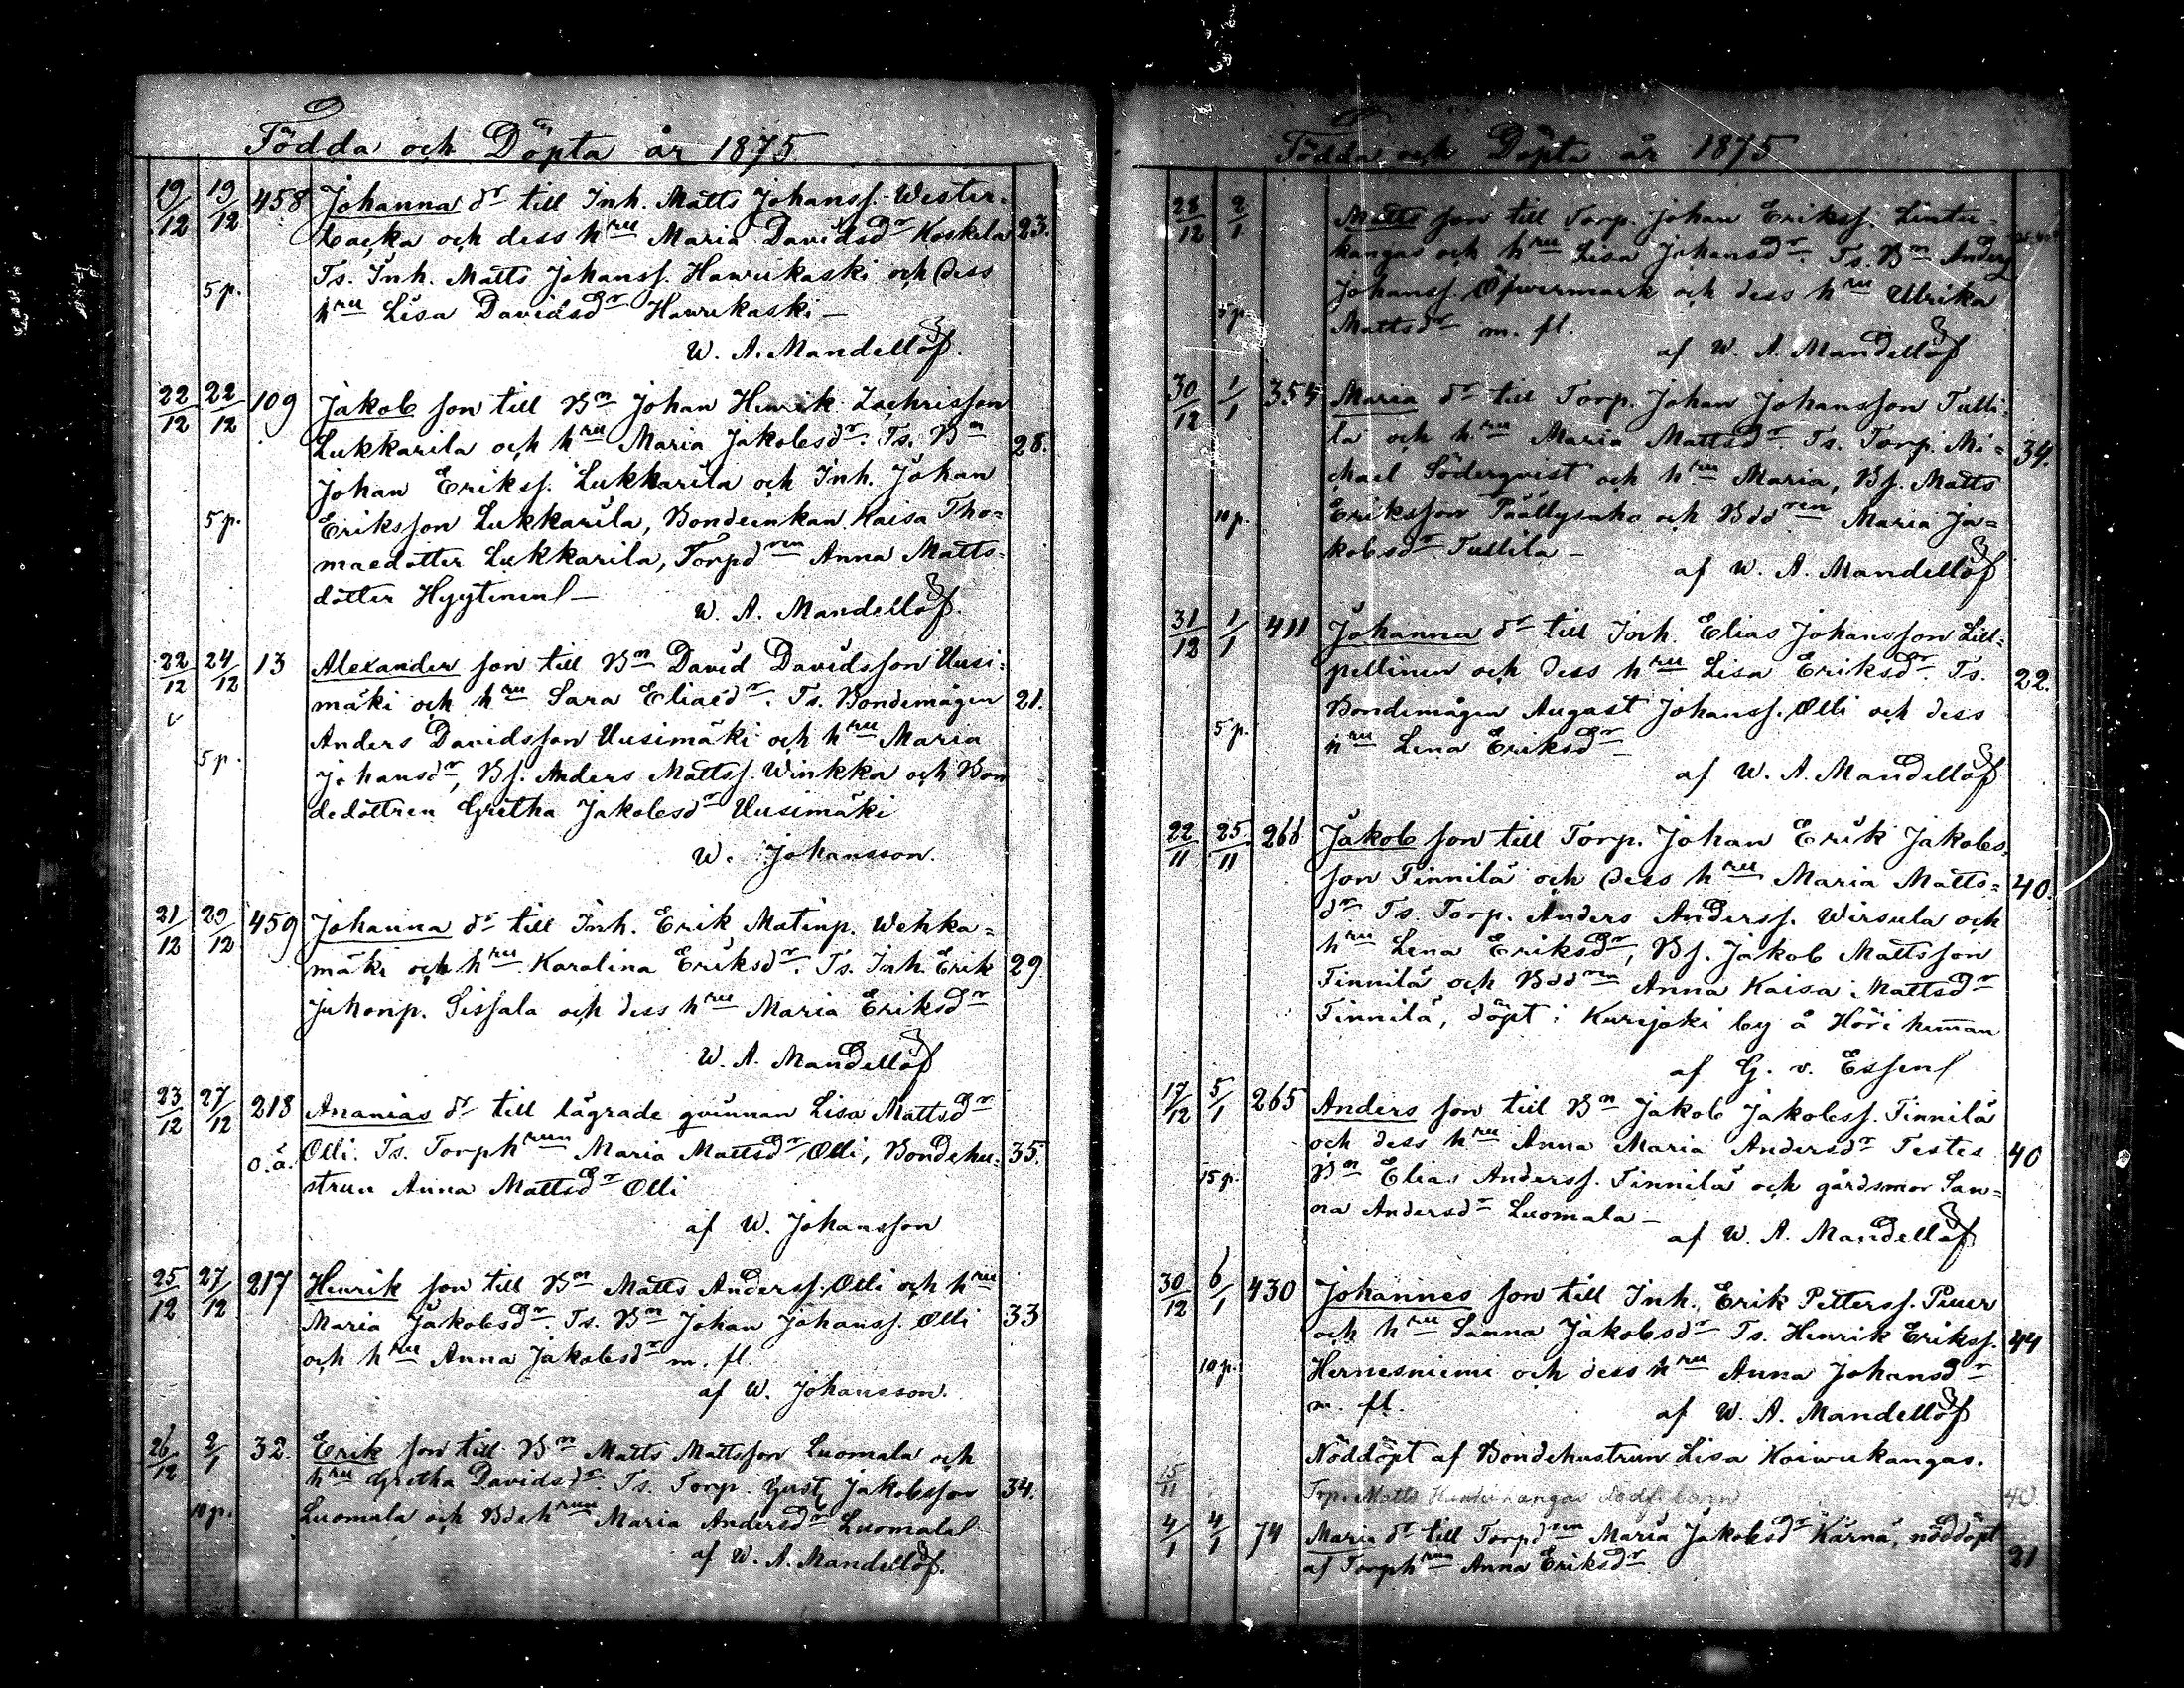 Födda och Döpta år 1875
19/12 19/12 458 Johanna dr till Inh. Matts Johanss. Wester-
backa och dess hru Maria Davidsdr Koskela 23.
Ts. Inh. Matts Johanss. Hawukaski och dess
5 p. hru Lisa Davidsdr Hawukaski –
W. A. Mandellöf.
22/12 22/12 109 Jakob son till Bm Johan Henrik Zachrisson
Lukkarila och hru Maria Jakobsdr. Ts. Bm 28.
Johan Erikss. Lukkarila och Inh. Johan
5 p. Eriksson Lukkarila, Bondeenkan Kaisa Tho=
maedotter Lukkarila, Torpdren Anna Matts-
dotter Hyytinen –
W. A. Mandellöf.
22/12 24/12 13 Alexander son till Bm David Davidsson Uusi=
mäki och hru Sara Eliaedr. Ts. Bondemågen 21.
Anders Davidsson Uusimäki och hru Maria
5 p. Johansdr, Bs. Anders Mattss. Winkka och Bon
dedottren Gretha Jakobsdr Uusimäki
W. Johansson.
21/12 29/12 459 Johanna dr till Inh. Erik Matinp. Wehka=
mäki och hru Karolina Eriksdr. Ts. Inh. Erik 29
Juhonp. Sissala och dess hru Maria Eriksdr
W. A. Mandellöf
23/12 27/12 218 Ananias dr till lägrade qvinnan Lisa Mattsdr
o.ä. Olli. Ts. Torphrun Maria Mattsdr Olli, Bondehu- 35.
strun Anna Mattsdr Olli
af W. Johansson
25/12 27/12 217 Henrik son till Bm Matts Anderss. Olli och hru
Maria Jakobsdr. Ts. Bm Johan Johanss. Olli 33
och hru Anna Jakobsdr m. fl.
af W. Johansson.
26/12 2/1 32. Erik son till Bm Matts Mattsson Luomala och
hru Gretha Davidsdr. Ts. Torp. Gust. Jakobsson 34.
10 p. Luomala och Bdehrun Maria Andersdr Luomala
af W. A. Mandellöf.
Födda och Döpta år 1875
28/12 2/1 Matts son till Torp. Johan Erikss. Lintu-
kangas och hru Lisa Johansdr. Ts. Bm Anders
Johanss. Öfvermark och dess hru Ulrika
Mattsdr m. fl.
af W. A. Mandellöf
30/12 1/1 355 Maria dr till Torp. Johan Johansson Tulli-
la och hru Maria Mattsdr. Ts. Torp. Mi= 34.
kael Söderqvist och hru Maria, Bs. Matts
10 p. Eriksson Päällysaho och Bddren Maria Ja=
kobsdr Tullila –
af W. A. Mandellöf
31/12 1/1 411 Johanna dr till Inh. Elias Johansson Lill-
pellinen och dess hru Lisa Eriksdr. Ts. 22.
Bondemågen August Johanss. Olli och dess
5 p. hru Lena Eriksdr
af W. A. Mandellöf
22/11 25/11 266 Jakob son till Torp. Johan Erik Jakobs-
son Tinnilä och dess hru Maria Matts= 40.
dr Ts. Torp. Anders Anderss. Wirsula och
hru Lena Eriksdr, Bs. Jakob Mattsson
Tinnilä och Bddren Anna Kaisa Mattsdr
Tinnilä, döpt i Kurejoki by å Höri heman
af G. v. Essen
17/12 5/1 265 Anders son till Bm Jakob Jakobss. Tinnilä
och dess hru Anna Maria Andersdr Testes 40
15 p. Bm Elias Anderss. Tinnilä och gårdsmor San=
na Andersdr Luomala –
af W. A. Mandellöf
30/12 6/1 430 Johannes son till Inh. Erik Petterss. Puur
och hru Sanna Jakobsdr Ts. Henrik Erikss. 44
10 p. Hernesniemi och dess hru Anna Johansdr
m. fl. af W. A. Mandellöf
Nöddöpt af Bondehustrun Lisa Koiwukangas.
15/11 Trp. Matts dödf. barn 40.
4/1 4/1 74 Maria dr till Torpdren Maria Jakobsdr Kärnä, nöddöpt
af Torphrun Anna Eriksdr 21